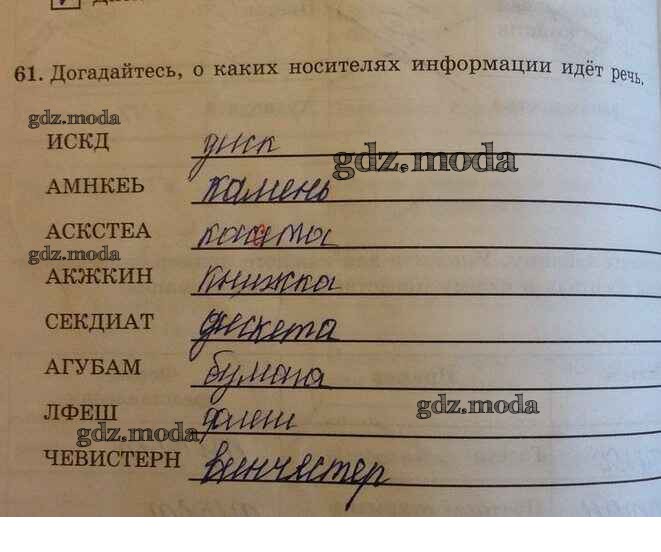 61. Догадайтесь, о каких носителях информации идёт речь.
gdz.moda
ИСКД диск
gdz.moda
АМНКЕЬ камень
АСКСТЕА кассета
gdz.moda
АКЖКИН книжка
СЕКДИАТ дискета
АГУБАМ бумага
ЛФЕШ флеш
gdz.moda
gdz.moda
ЧЕВИСТЕРН винчестер